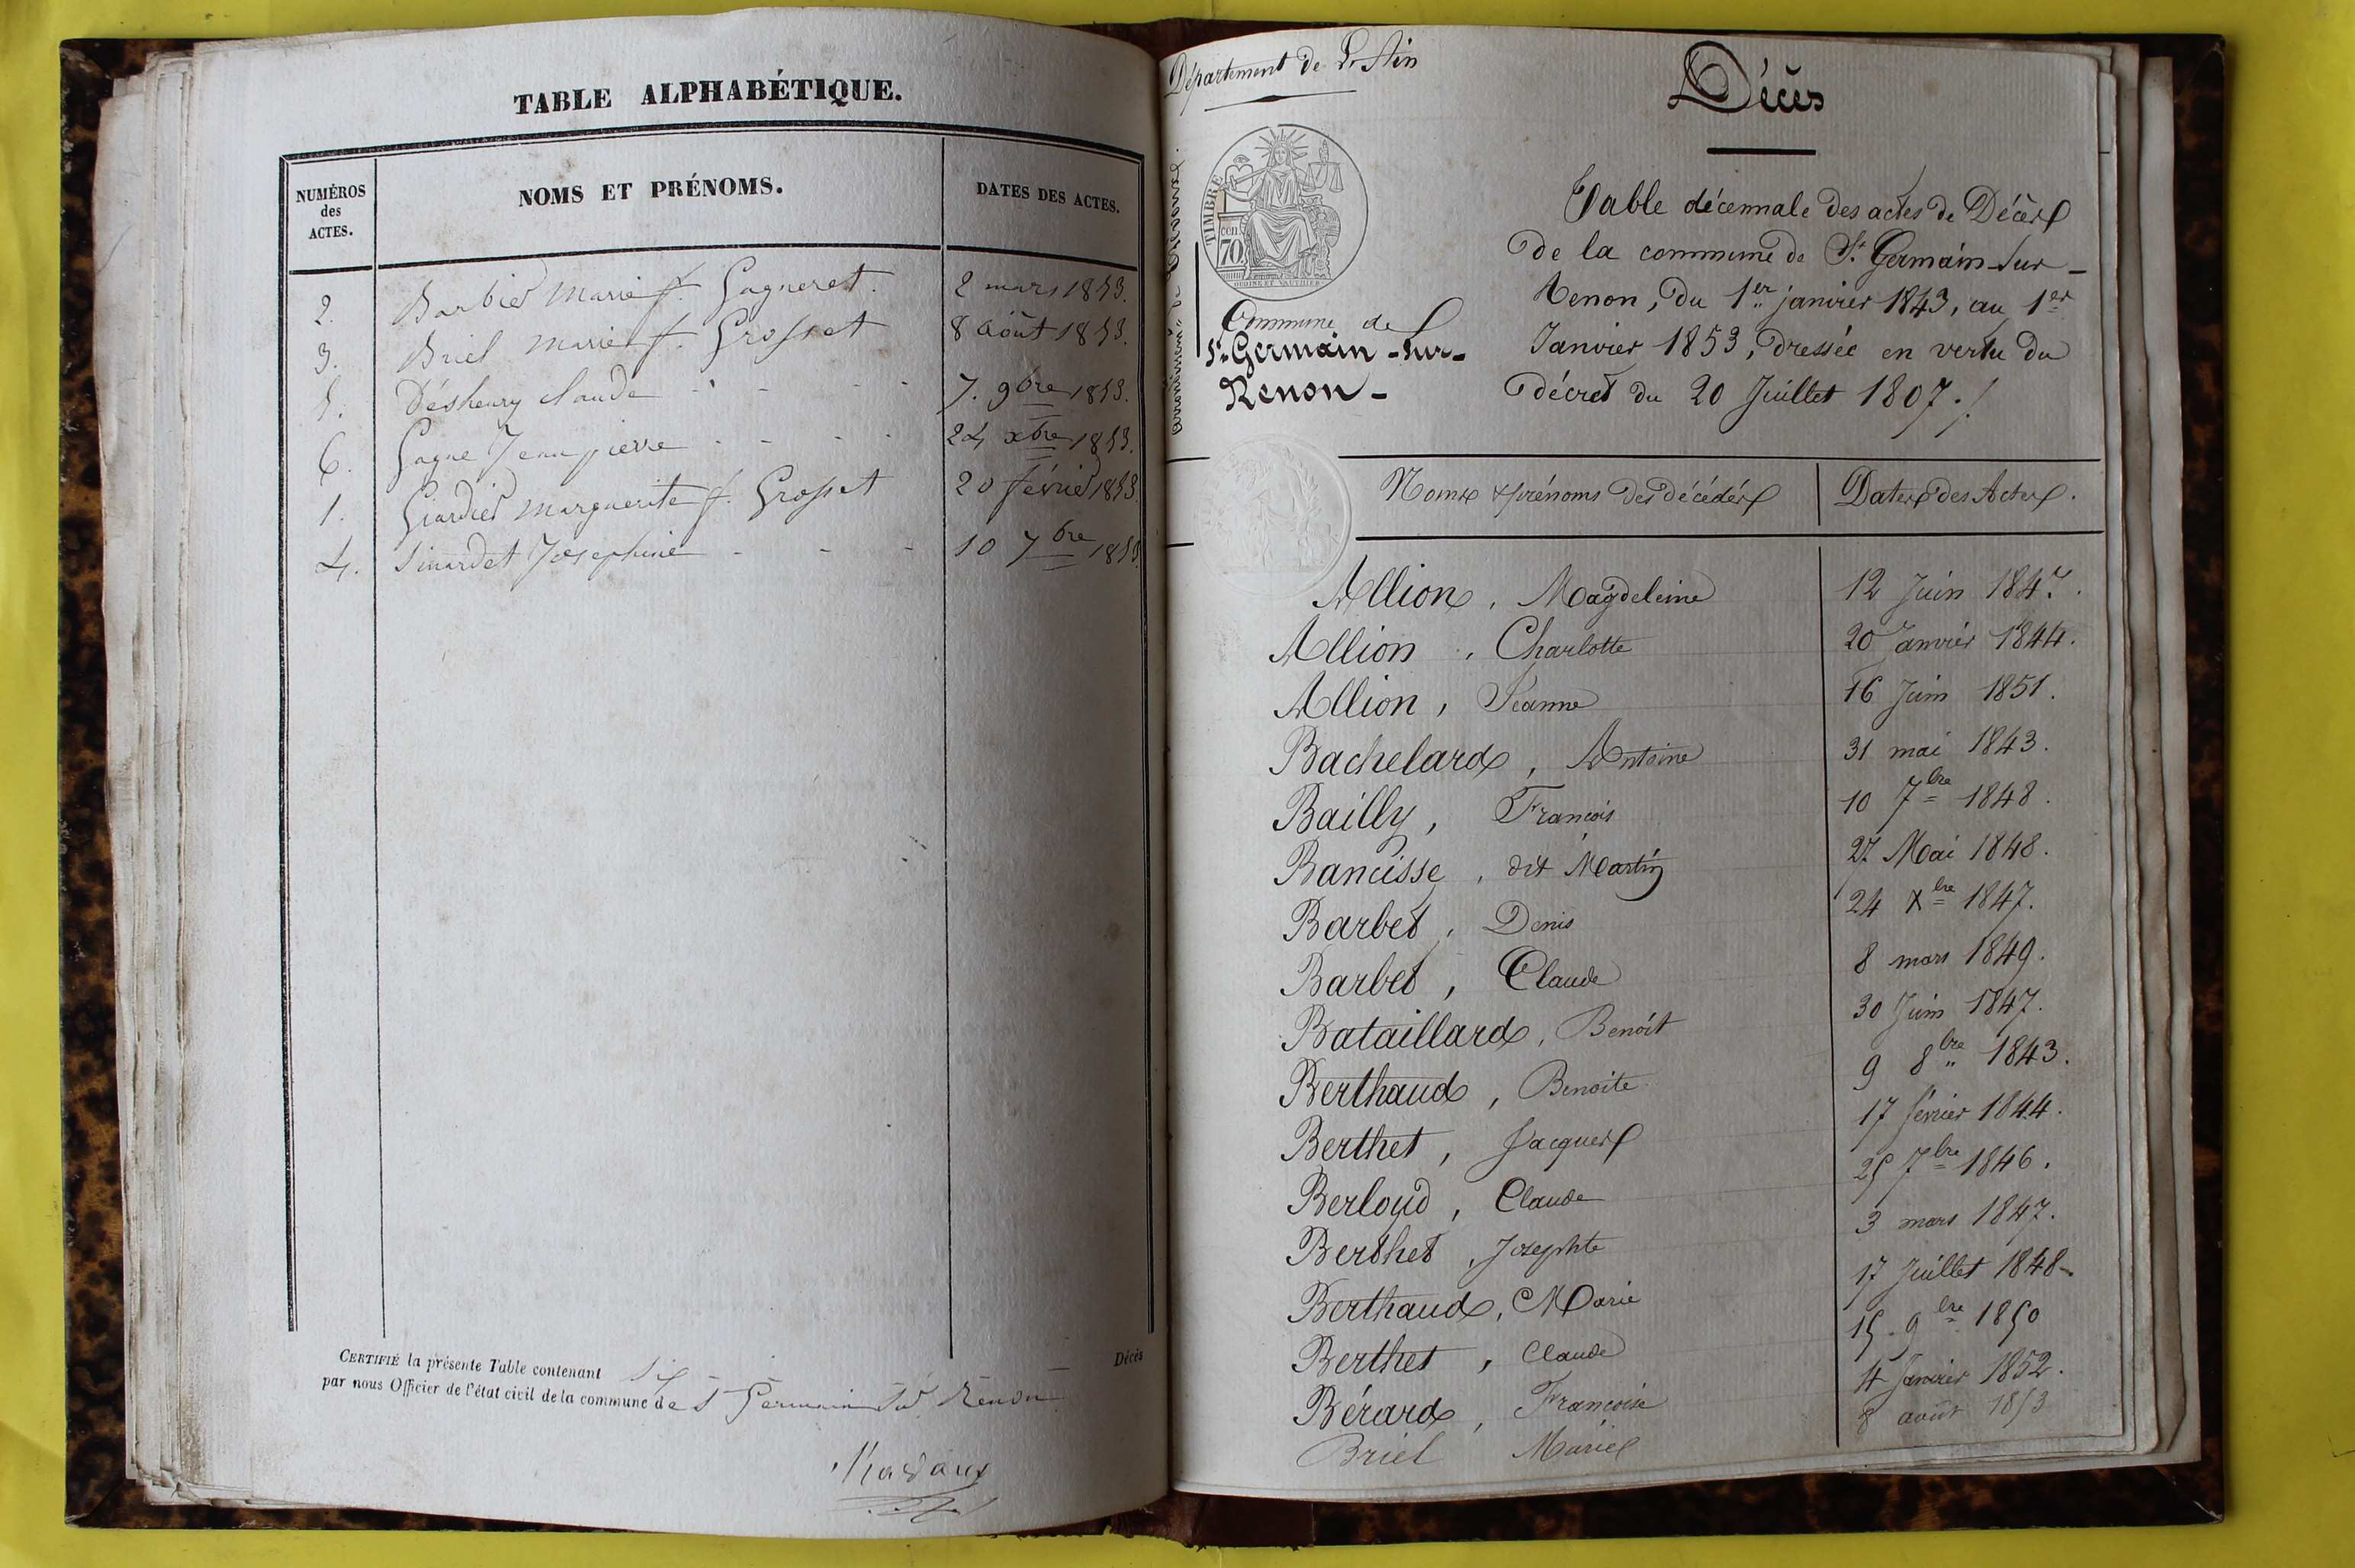 TABLE ALPHABÉTIQUE.
NUMÉROS des ACTES. NOMS ET PRÉNOMS. DATES DES ACTES.
2. Barbier Marie f. Gagneret. 2 mars 1853.
3. Briel Marie f. Grosset 8 août 1853.
5. Déshenry Claude - - - - 7. 9bre 1853.
6. Gagne Jean pierre - - - - 24 xbre 1853.
1. Giardier Marguerite f. Grosset 20 février 1853.
4. Sinardet Josephine - - - 10 7bre 1853
CERTIFIÉ la présente Table contenant six Décès
par nous Officier de l'état civil de la commune de St Germain Sur Renon
Département de L'Ain
Décès
TIMBRE
cen
70
OUDINÉ ET VAUTHIER
Commune de
St Germain-Sur-
Renon-
Table décennale des actes de Décès
de la commune de St Germain-Sur-
Renon, du 1er janvier 1843, au 1er
Janvier 1853, dressée en vertu du
décret du 20 Juillet 1807./
Noms & prénoms des décédés Dates des Actes.
Allion, Magdeleine 12 Juin 1847.
Allion, Charlotte 20 Janvier 1844.
Allion, Jeanne 16 Juin 1851.
Bachelard, Antoine 31 mai 1843.
Bailly, François 10 7bre 1848.
Bancisse, dit Martin 27 Mai 1848.
Barbet, Denis 24 Xbre 1847.
Barbet, Claude 8 mars 1849.
Bataillard, Benoît 30 Juin 1847.
Berthaud, Benoite 9 8bre 1843.
Berthet, Jacques 17 février 1844.
Berloud, Claude 25 7bre 1846.
Berthet, Josephte 3 mars 1847.
Berthaud, Marie 17 Juillet 1848-
Berthet, Claude 15. 9bre 1850
Bérard, Françoise 4 Janvier 1852.
Briel Marie 8 août 1853